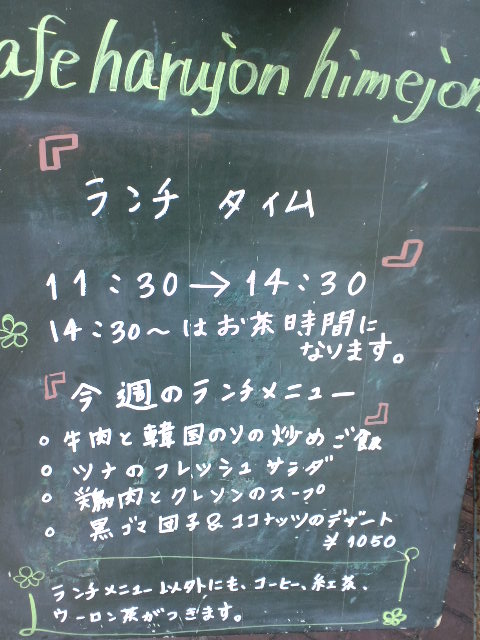 afe harujon himejon
『ランチ タイム』
11:30→14:30
14:30〜はお茶時間に
なります。
『今週のランチメニュー』
○ 牛肉と韓国のソの炒めご飯
○ ツナのフレッシュサラダ
○ 鶏肉とクレソンのスープ
○ 黒ゴマ団子&ココナッツのデザート
¥1050
ランチメニュー以外にも、コーヒー、紅茶、
ウーロン茶がつきます。